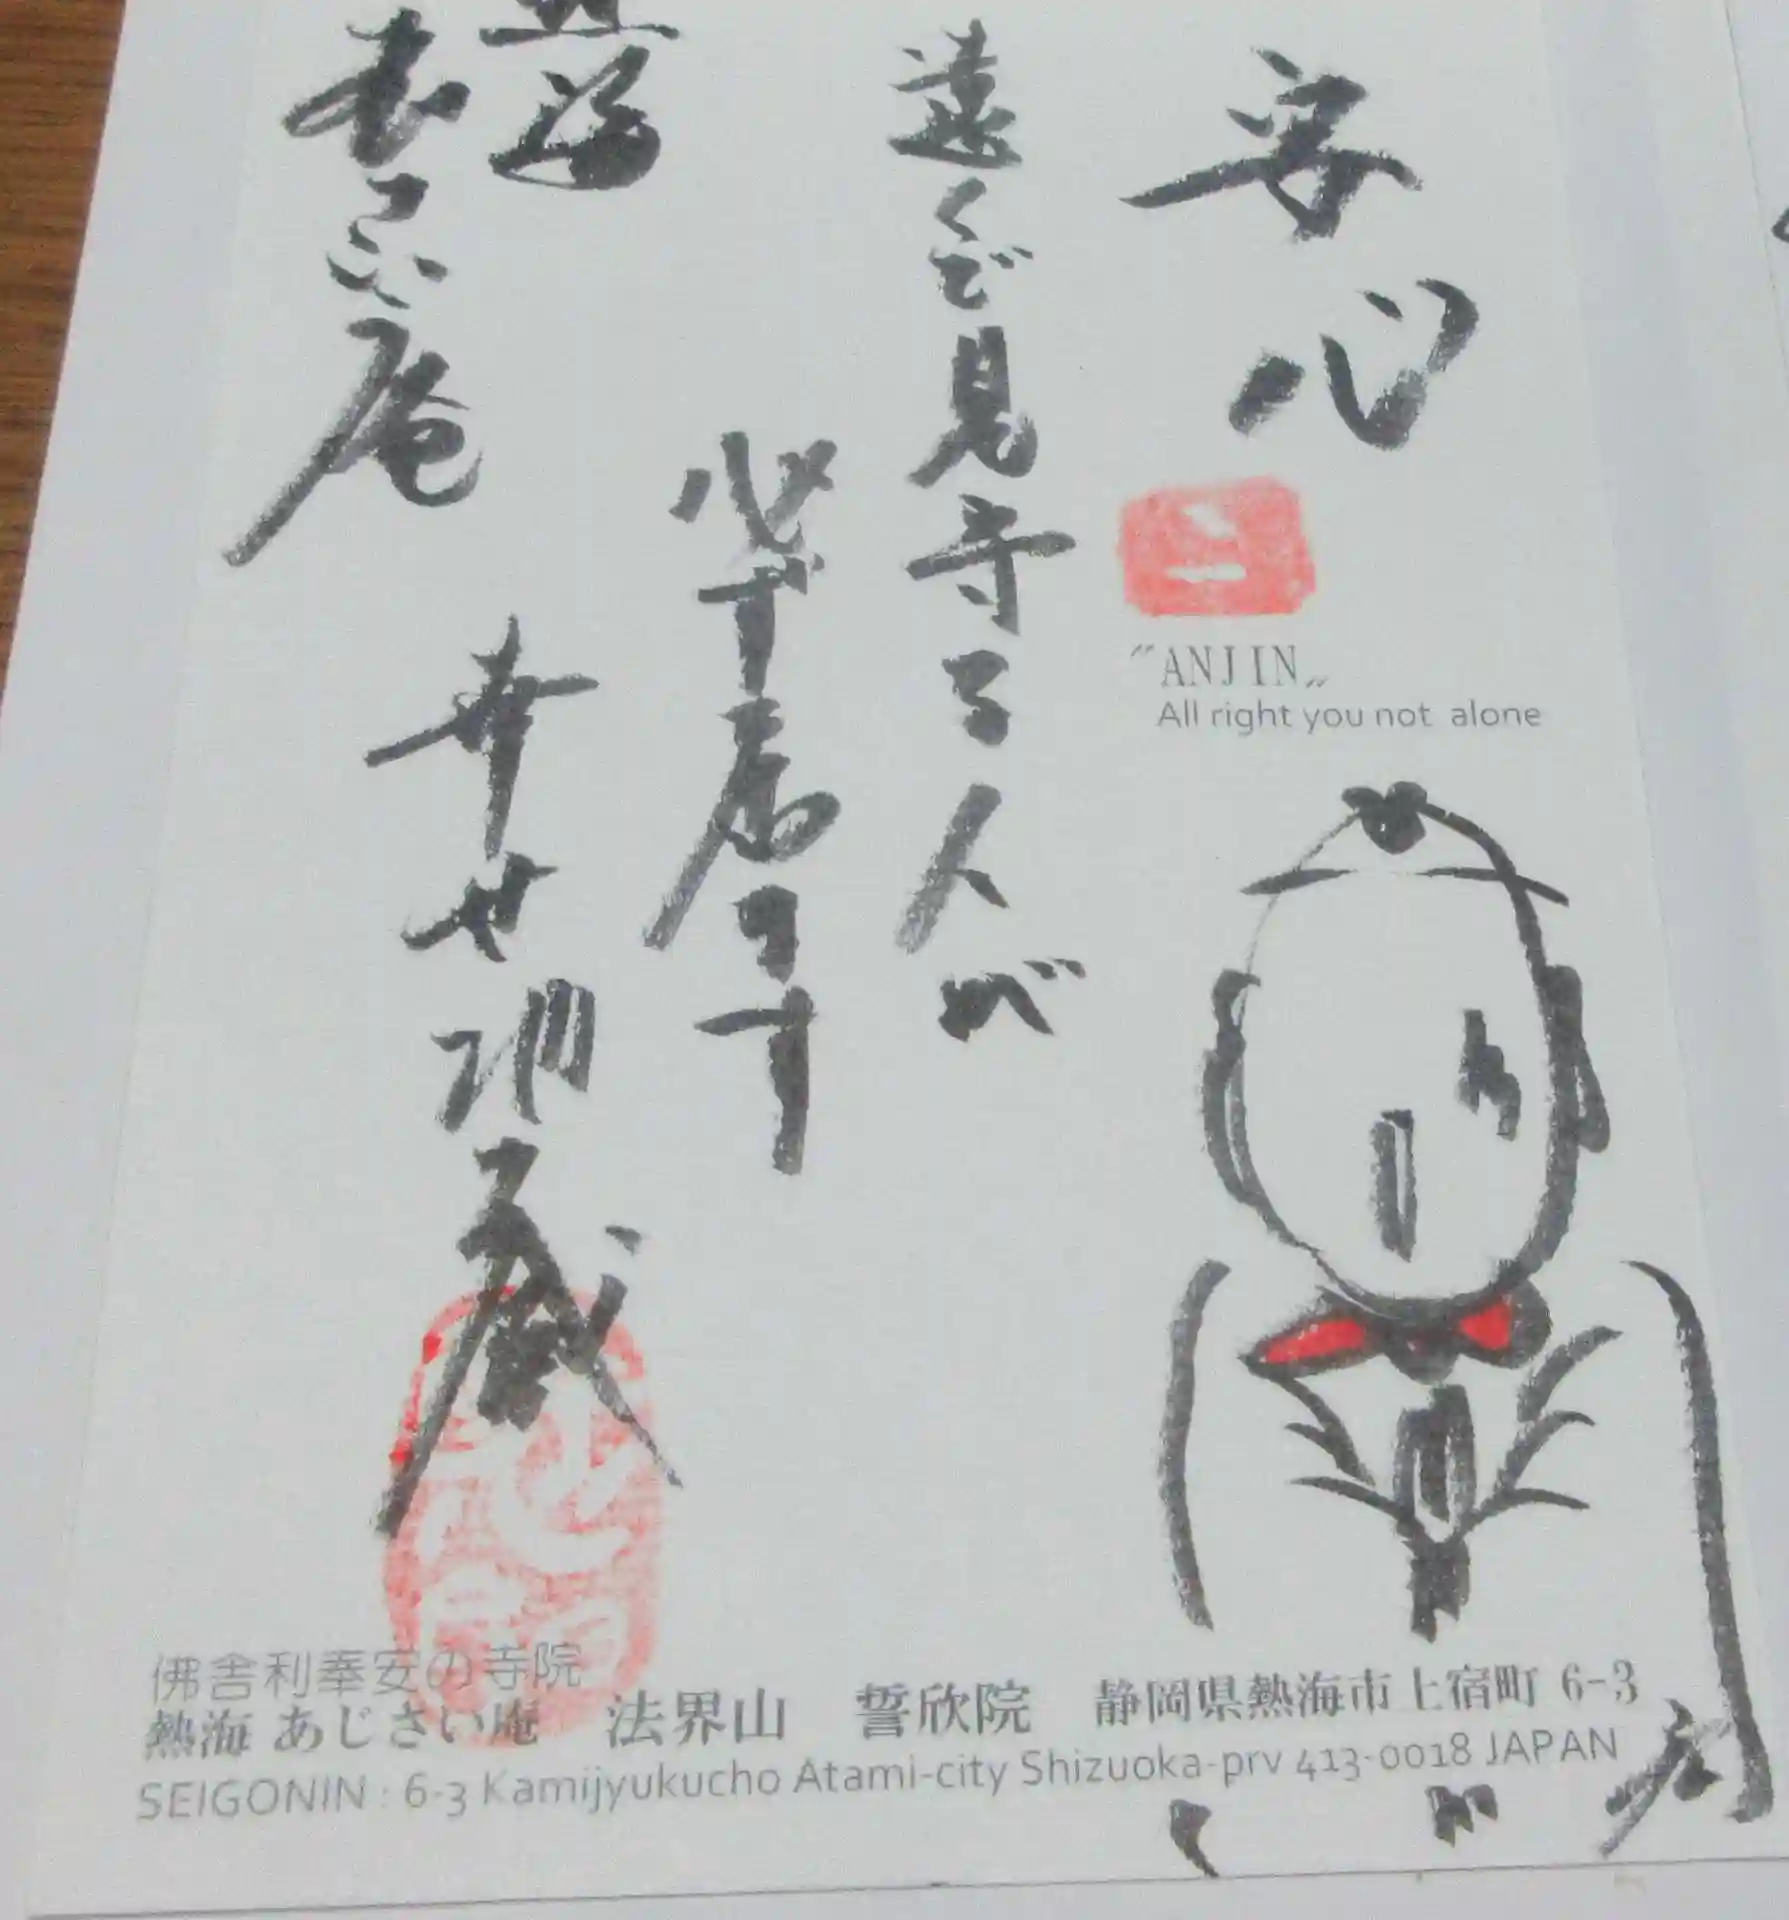 安心
"ANJIN„
All right you not alone
遠くで見守る人が
必ず居ます
幸せ地蔵
佛舎利奉安の寺院
熱海 あじさい庵 法界山 誓欣院 静岡県熱海市上宿町 6-3
SEIGONIN : 6-3 Kamijyukucho Atami-city Shizuoka-prv 413-0018 JAPAN